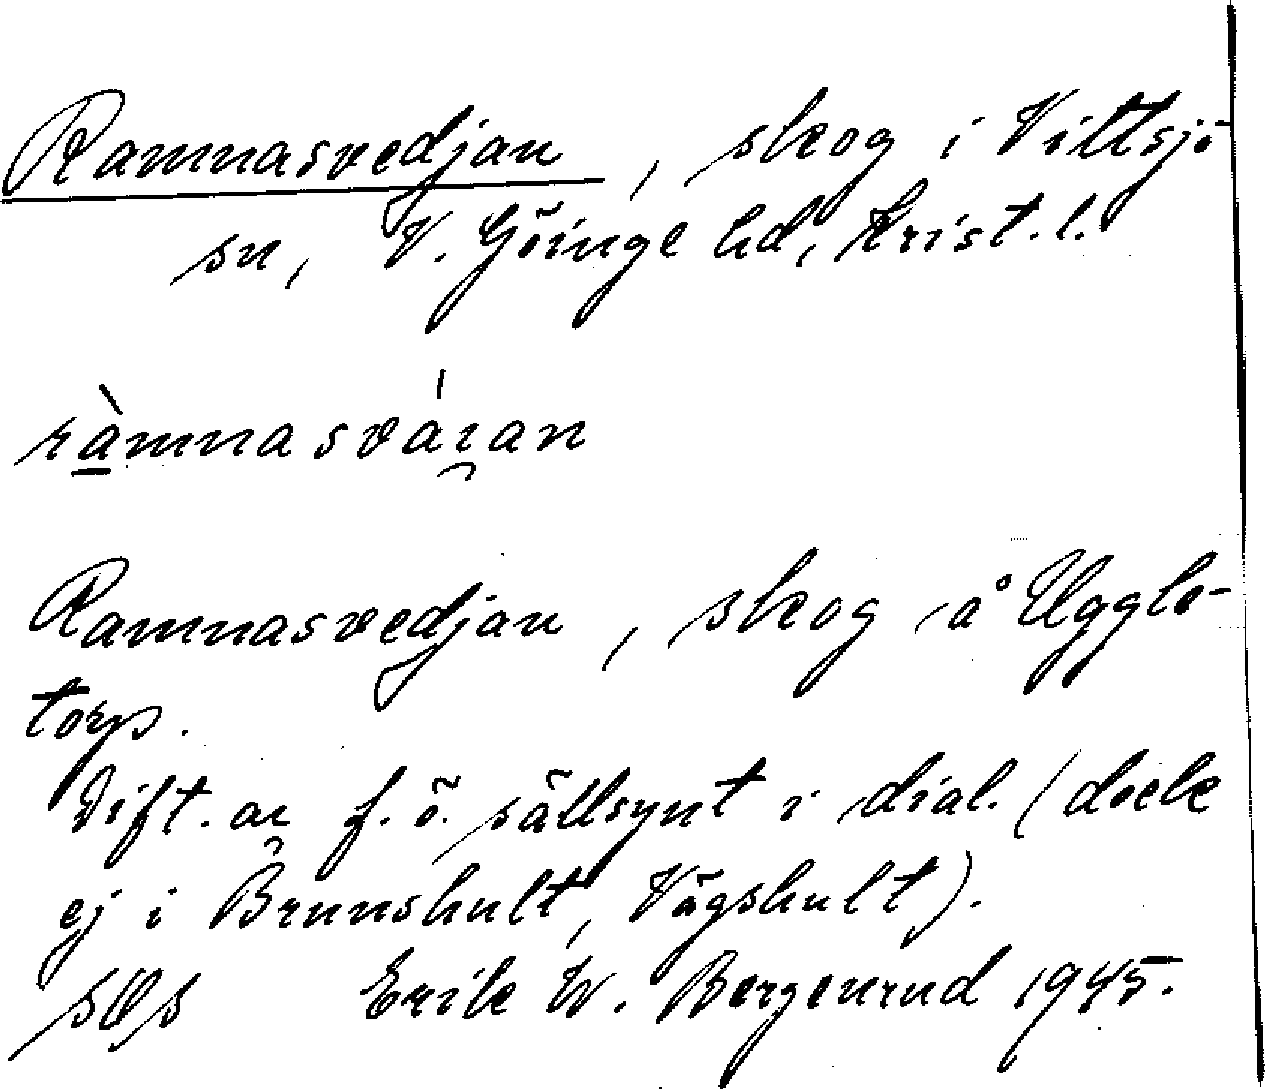 Ramnasvedjan, skog i Vittsjö
sn, V. Göinge hd, Krist. l.
ràmnasváı̯an
Ramnasvedjan, skog å Ugglo-
torp.
Dift. aı̯ f. ö. sällsynt i dial. (dock
ej i Brunshult, Vägshult).
Erik W. Bergenrud 1945.